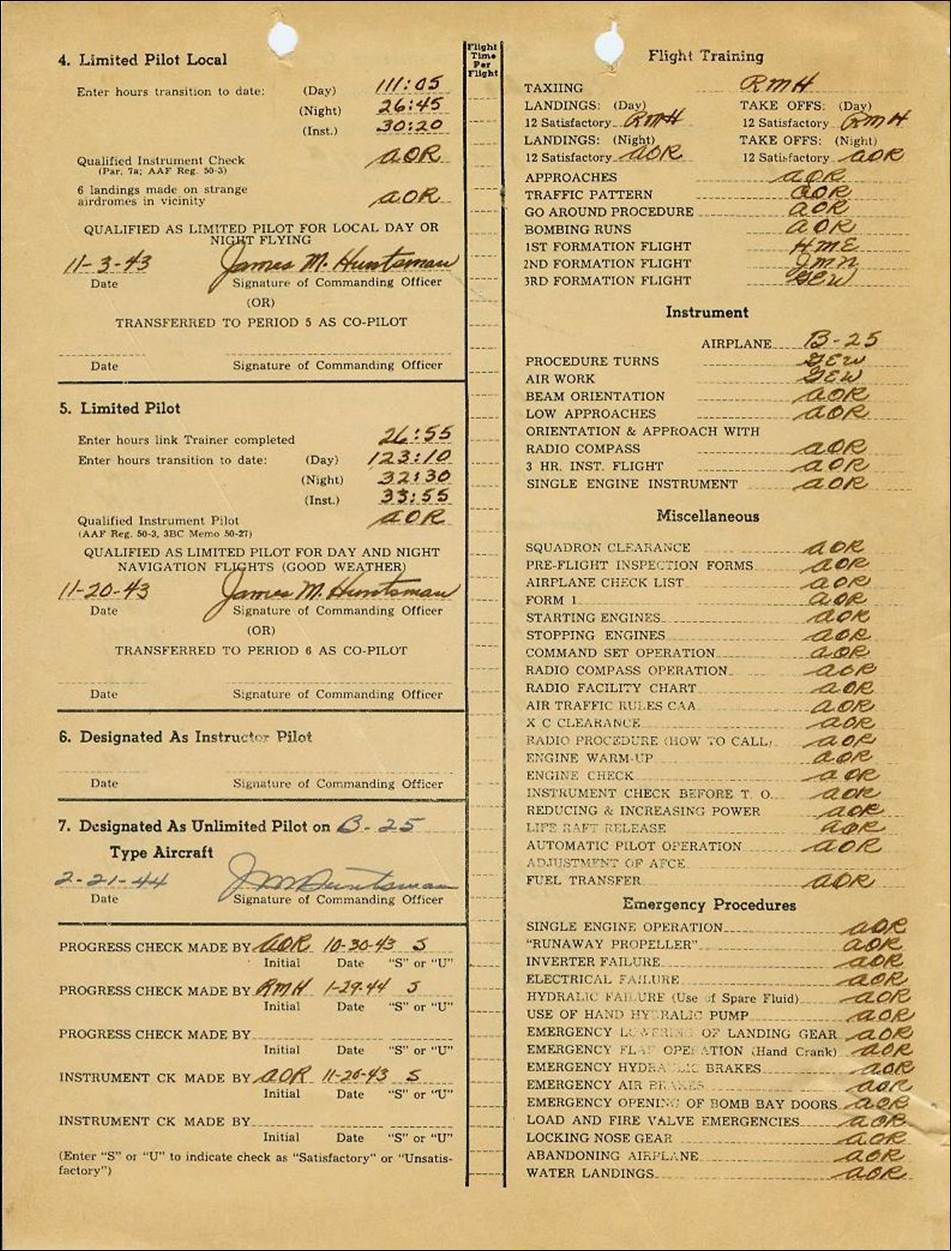 4. Limited Pilot Local
Enter hours transition to date: (Day) 111:05
(Night) 26:45
(Inst.) 30:20
Qualified Instrument Check AOR
(Par. 7a; AAF Reg. 50-3)
6 landings made on strange
airdromes in vicinity AOR
QUALIFIED AS LIMITED PILOT FOR LOCAL DAY OR
NIGHT FLYING
11-3-43 James M. Huntsman
Date Signature of Commanding Officer
(OR)
TRANSFERRED TO PERIOD 5 AS CO-PILOT
Date Signature of Commanding Officer
5. Limited Pilot
Enter hours link Trainer completed 26:55
Enter hours transition to date: (Day) 123:10
(Night) 32:30
(Inst.) 33:55
Qualified Instrument Pilot AOR
(AAF Reg. 50-3, 3BC Memo 50-27)
QUALIFIED AS LIMITED PILOT FOR DAY AND NIGHT
NAVIGATION FLIGHTS (GOOD WEATHER)
11-20-43 James M. Huntsman
Date Signature of Commanding Officer
(OR)
TRANSFERRED TO PERIOD 6 AS CO-PILOT
Date Signature of Commanding Officer
6. Designated As Instructor Pilot
Date Signature of Commanding Officer
7. Designated As Unlimited Pilot on B-25
Type Aircraft
2-21-44 J M Huntsman
Date Signature of Commanding Officer
PROGRESS CHECK MADE BY AOR 10-30-43 S
Initial Date "S" or "U"
PROGRESS CHECK MADE BY RMH 1-29-44 S
Initial Date "S" or "U"
PROGRESS CHECK MADE BY
Initial Date "S" or "U"
INSTRUMENT CK MADE BY AOR 11-20-43 S
Initial Date "S" or "U"
INSTRUMENT CK MADE BY
Initial Date "S" or "U"
(Enter "S" or "U" to indicate check as "Satisfactory" or "Unsatis-
factory")
Flight
Time
Per
Flight
Flight Training
TAXIING RMH
LANDINGS: (Day) TAKE OFFS: (Day)
12 Satisfactory RMH 12 Satisfactory RMH
LANDINGS: (Night) TAKE OFFS: (Night)
12 Satisfactory AOR 12 Satisfactory AOR
APPROACHES AOR
TRAFFIC PATTERN AOR
GO AROUND PROCEDURE AOR
BOMBING RUNS AOR
1ST FORMATION FLIGHT HME
2ND FORMATION FLIGHT
3RD FORMATION FLIGHT GEW
Instrument
AIRPLANE B-25
PROCEDURE TURNS GEW
AIR WORK GEW
BEAM ORIENTATION AOR
LOW APPROACHES AOR
ORIENTATION & APPROACH WITH
RADIO COMPASS AOR
3 HR. INST. FLIGHT AOR
SINGLE ENGINE INSTRUMENT AOR
Miscellaneous
SQUADRON CLEARANCE AOR
PRE-FLIGHT INSPECTION FORMS AOR
AIRPLANE CHECK LIST AOR
FORM 1 AOR
STARTING ENGINES AOR
STOPPING ENGINES AOR
COMMAND SET OPERATION AOR
RADIO COMPASS OPERATION AOR
RADIO FACILITY CHART AOR
AIR TRAFFIC RULES CAA AOR
X C CLEARANCE AOR
RADIO PROCEDURE (HOW TO CALL) AOR
ENGINE WARM-UP AOR
ENGINE CHECK AOR
INSTRUMENT CHECK BEFORE T. O. AOR
REDUCING & INCREASING POWER AOR
LIFE RAFT RELEASE AOR
AUTOMATIC PILOT OPERATION AOR
ADJUSTMENT OF AFCE
FUEL TRANSFER AOR
Emergency Procedures
SINGLE ENGINE OPERATION AOR
"RUNAWAY PROPELLER" AOR
INVERTER FAILURE AOR
ELECTRICAL FAILURE AOR
HYDRALIC FAILURE (Use of Spare Fluid) AOR
USE OF HAND HYDRALIC PUMP AOR
EMERGENCY LOWERING OF LANDING GEAR AOR
EMERGENCY FLAP OPERATION (Hand Crank) AOR
EMERGENCY HYDRALIC BRAKES AOR
EMERGENCY AIR BRAKES AOR
EMERGENCY OPENING OF BOMB BAY DOORS AOR
LOAD AND FIRE VALVE EMERGENCIES AOR
LOCKING NOSE GEAR AOR
ABANDONING AIRPLANE AOR
WATER LANDINGS AOR